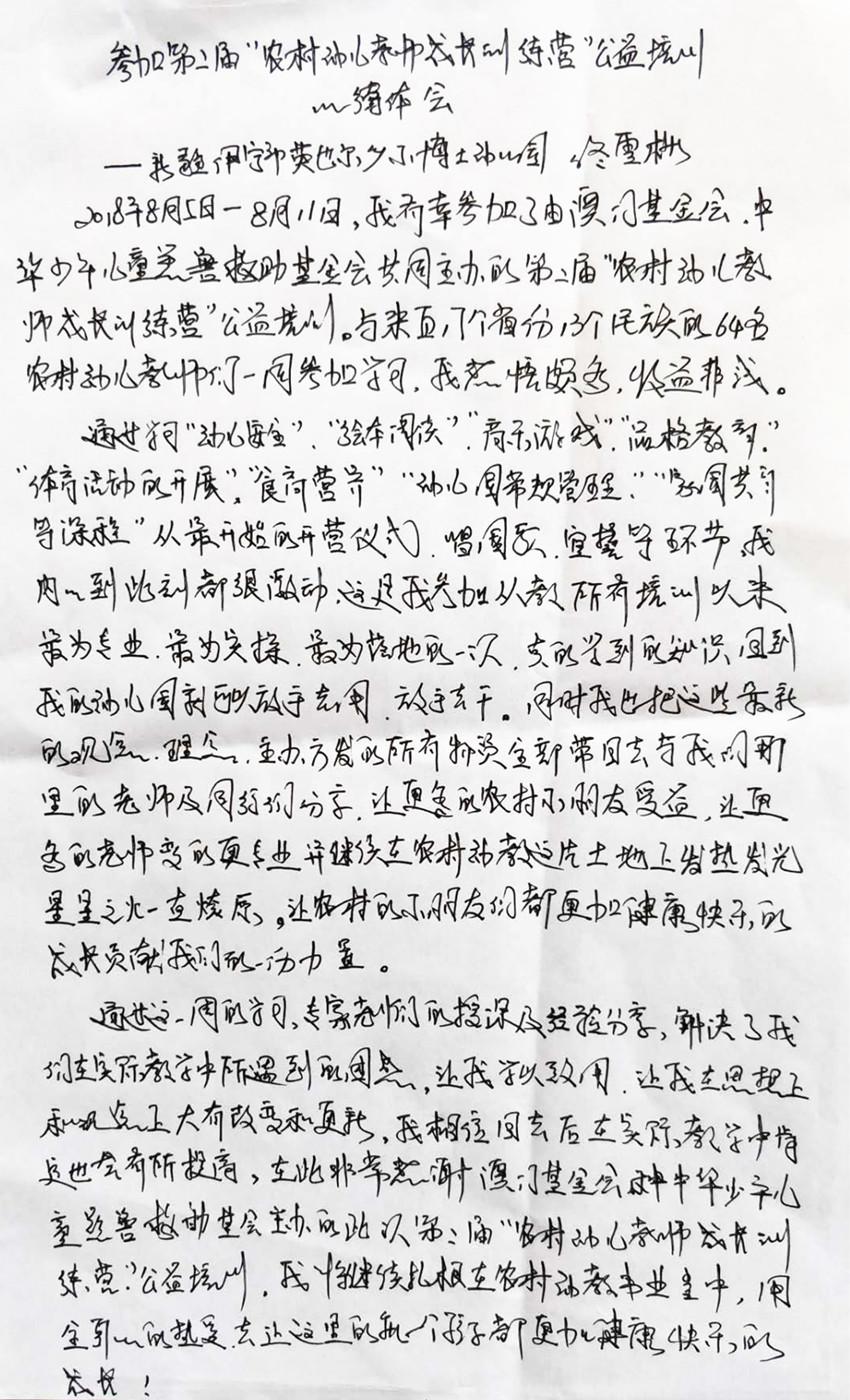 参加第二届“农村幼儿教师成长训练营”公益培训
心得体会
——新疆伊宁市英也尔乡小博士幼儿园 佟雪桃
2018年8月5日-8月11日，我有幸参加了由澳门基金会、中
华少年儿童慈善救助基金会共同主办的第二届“农村幼儿教
师成长训练营”公益培训。与来自17个省份13个民族的64名
农村幼儿教师们一同参加学习，我感悟颇多，收益非浅。
通过学习“幼儿安全”、“绘本阅读”、“音乐游戏”、“品格教育”、
“体育活动的开展”、“食育营养”“幼儿园常规管理”、“家园共育
等课程”从最开始的开营仪式、唱国歌、宣誓等环节，我
内心到此刻都很激动，这是我参加从教所有培训以来
最为专业、最为实操、最为落地的一次，真的学到的知识，回到
我的幼儿园就可以放手去用、放手去干。同时我也把这些最新
的观念、理念、主办方发的所有物资全部带回去与我们那
里的老师及同行们分享，让更多的农村小朋友受益，让更
多的老师变的更专业并继续在农村幼教这片土地上发热发光
星星之火一直燎原，让农村的小朋友们都更加健康快乐的
成长贡献我们的一份力量。
通过这一周的学习，专家老师们的授课及经验分享，解决了我
们在实际教学中所遇到的困惑，让我学以致用，让我在思想上
和观念上大有改变和更新，我相信回去后在实际教学中肯
定也会有所提高，在此非常感谢澳门基金会中华少年儿
童慈善救助基金会主办的此次第二届“农村幼儿教师成长训
练营”公益培训，我将继续扎根在农村幼教事业当中，用
全部心的热爱去让这里的每一个孩子都更加健康快乐的
成长！